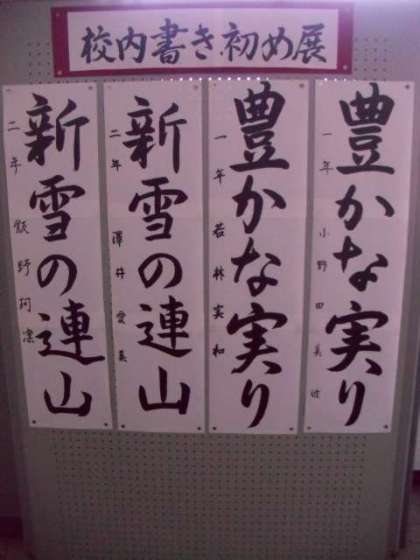 校内書き初め展
豊かな実り
一年 小野田美
豊かな実り
一年 若林実和
新雪の連山
二年 澤井愛美
新雪の連山
二年 飯野阿凛